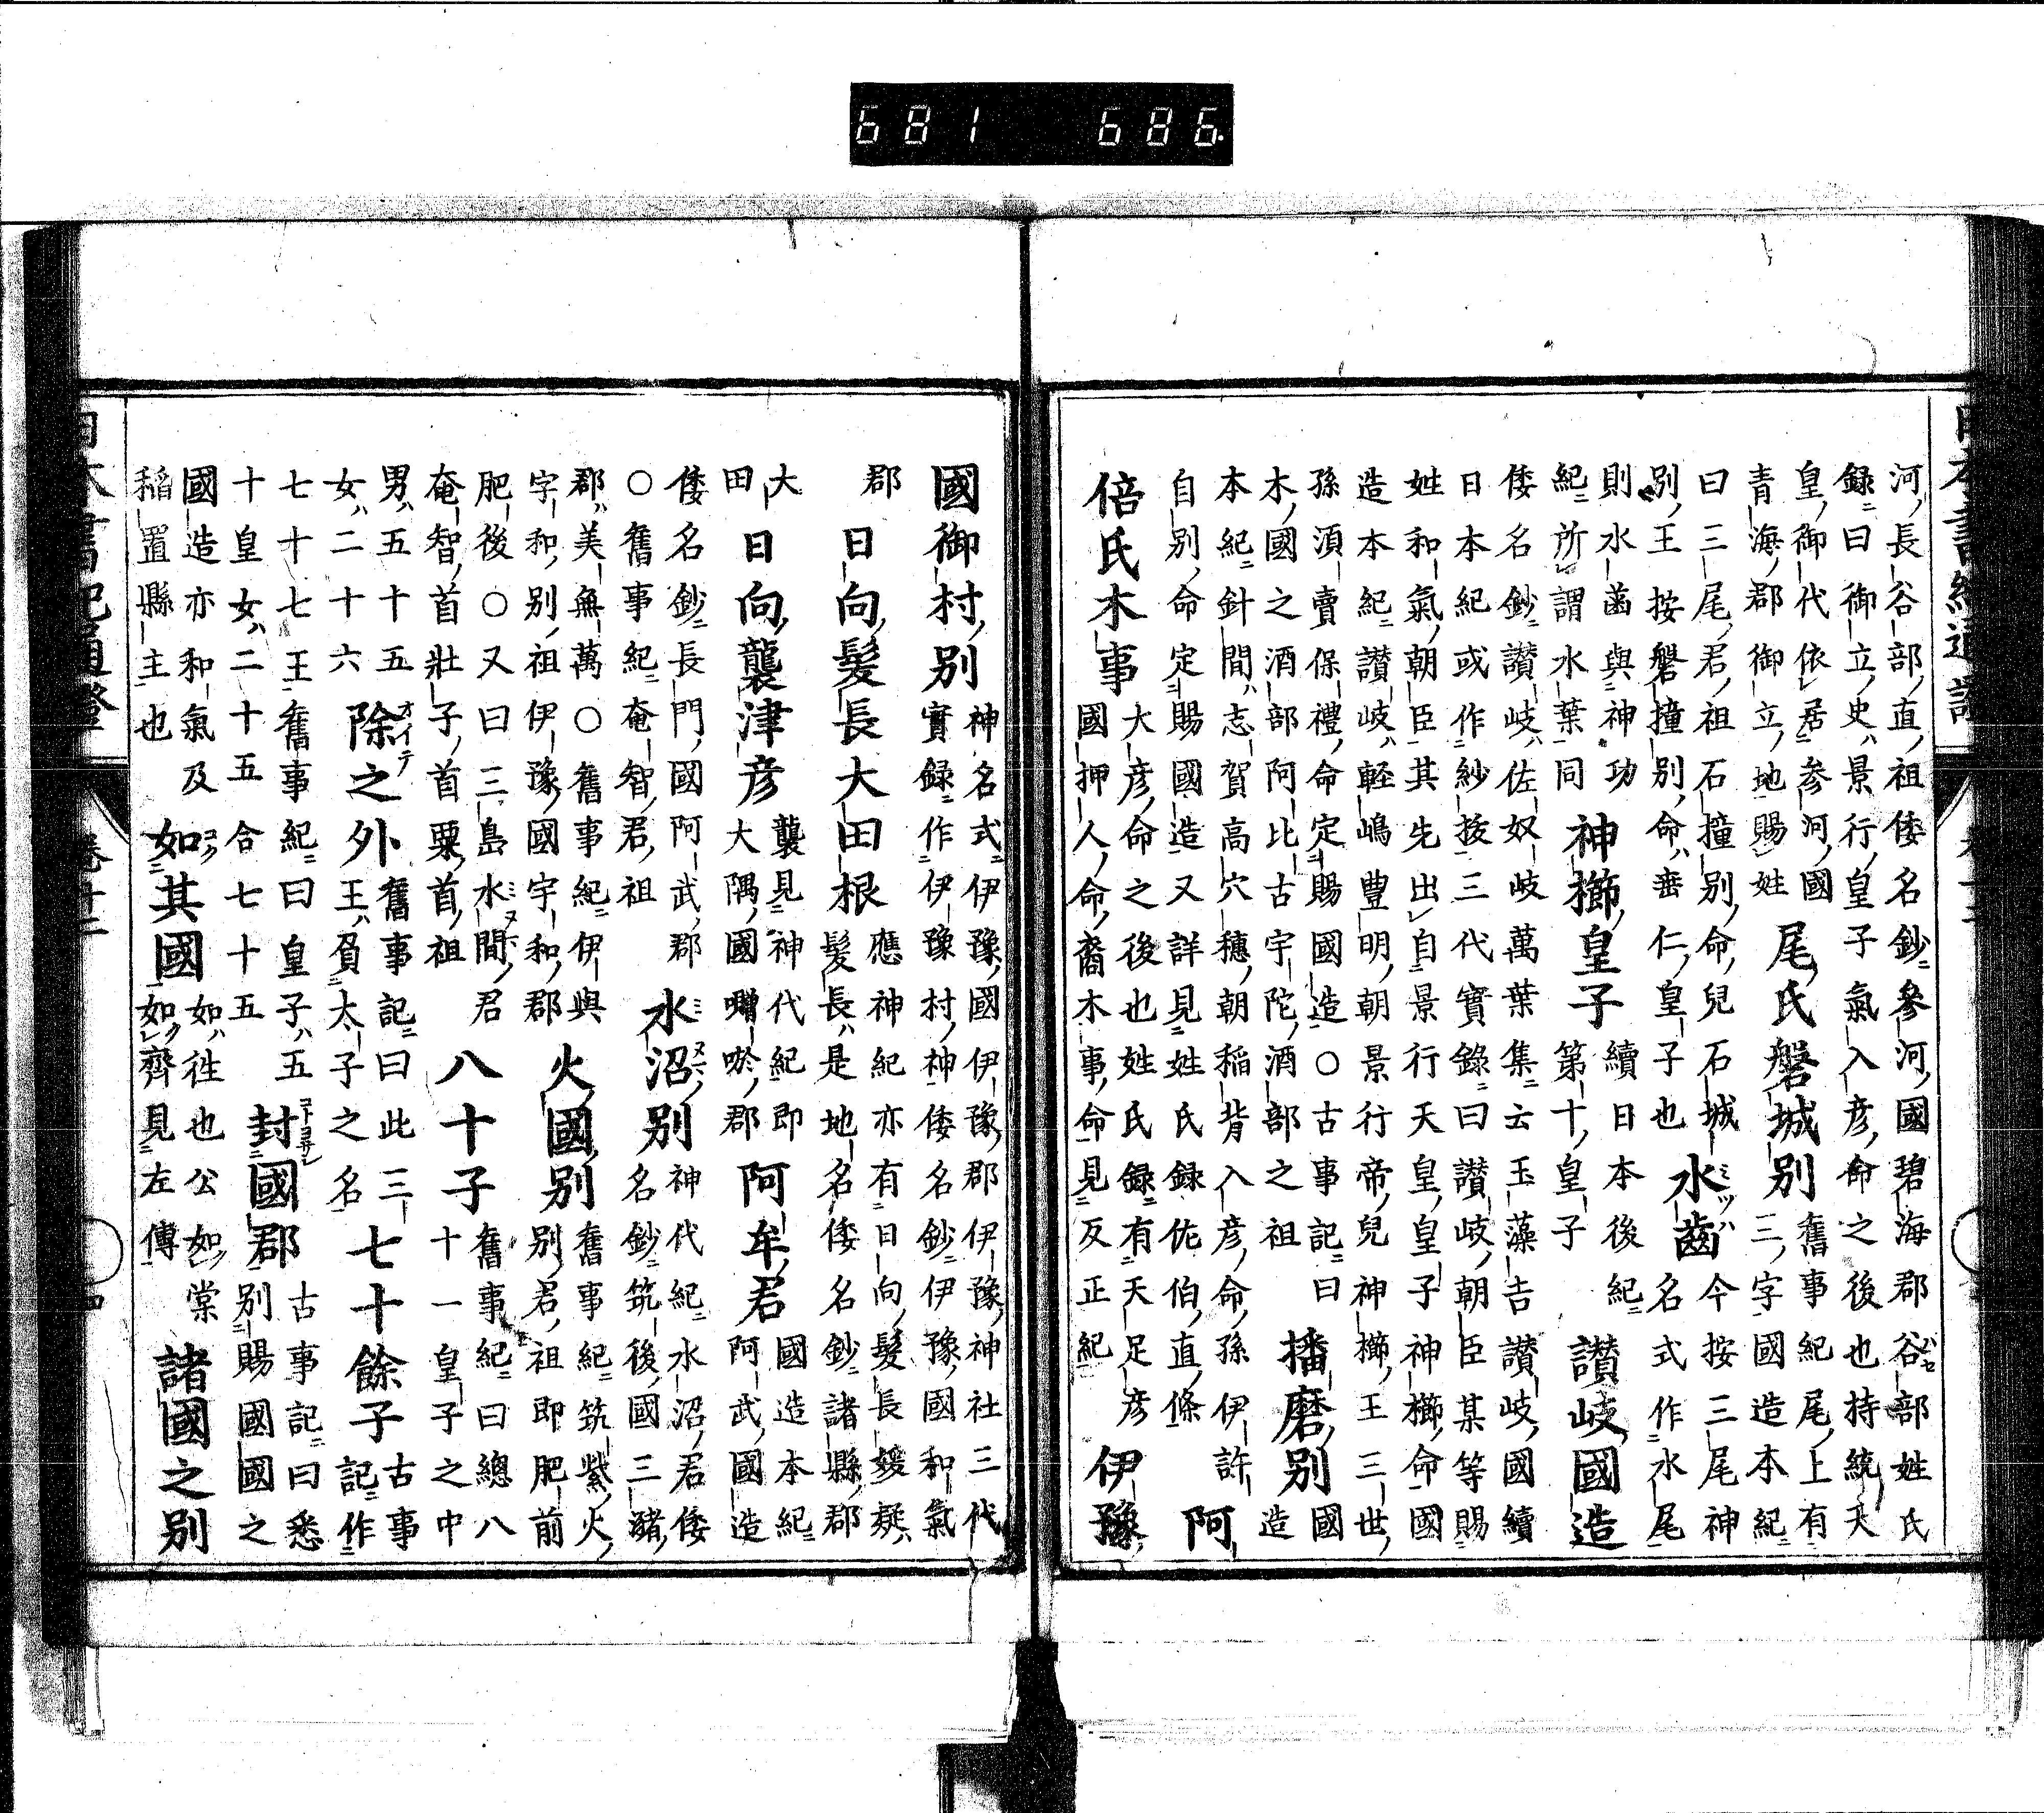 681 686
河長谷部直祖倭名鈔參河國碧海郡谷部姓氏
録曰御立史景行皇子氣入彦命之後也持統天
皇御代依居参河國
青海郡御立地賜姓
尾氏磐城別
舊事紀尾上有
三字國造本紀
曰三尾君祖石撞別命兒石城
別王按磐撞別命垂仁皇子也
水齒
今按三尾神
名式作水尾
則水齒與神功
紀所謂水葉同
神櫛皇子
續日本後紀
第十皇子
讃岐國造
倭名鈔讃岐佐奴岐萬葉集云玉藻吉讃岐國續
日本紀或作紗抜三代實錄曰讃岐朝臣某等賜
姓和氣朝臣其先出自景行天皇皇子神櫛命國
造本紀讃岐輕嶋豊明朝景行帝兒神櫛王三世
孫湏賣保禮命定賜國造○古事記曰
木國之酒部阿比古宇陀酒部之祖
播磨別
國
造
本紀針間志賀高穴穗朝稲背入彦命孫伊許
自別命定賜國造又詳見姓氏録佐伯直條
阿
倍氏木事
大彦命之後也姓氏録有天足彦
國押人命裔木事命見反正紀
伊豫
國御村別
神名式伊豫國伊豫郡伊豫神社三代
實録作伊豫村神倭名鈔伊豫國和氣
郡
日向髪長大田根
應神紀亦有日向髮長媛疑
髮長是地名倭名鈔諸縣郡
大
田
日向襲津彦
襲見神代紀即
大隅國囎唹郡
阿牟君
國造本紀
阿武國造
倭名鈔長門國阿武郡
○舊事紀奄智君祖
水沼別
神代紀水沼君倭
名鈔筑後國三瀦
郡美無萬○舊事紀伊與
宇和別祖伊豫國宇和郡
火國別
舊事紀筑紫火
別君祖即肥前
肥後○又曰三島水間君
奄智首壯子首粟首祖
八十子
舊事紀曰總八
十一皇子之中
男五十五
女二十六
除之外
舊事記曰此三
王負太子之名
七十餘子
古事
記作
七十七王舊事紀曰皇子五
十皇女二十五合七十五
封國郡
古事記曰悉
別賜國國之
國造亦和氣及
稲置縣主也
如其國
如徃也公如棠
如齊見左傳
諸國之別